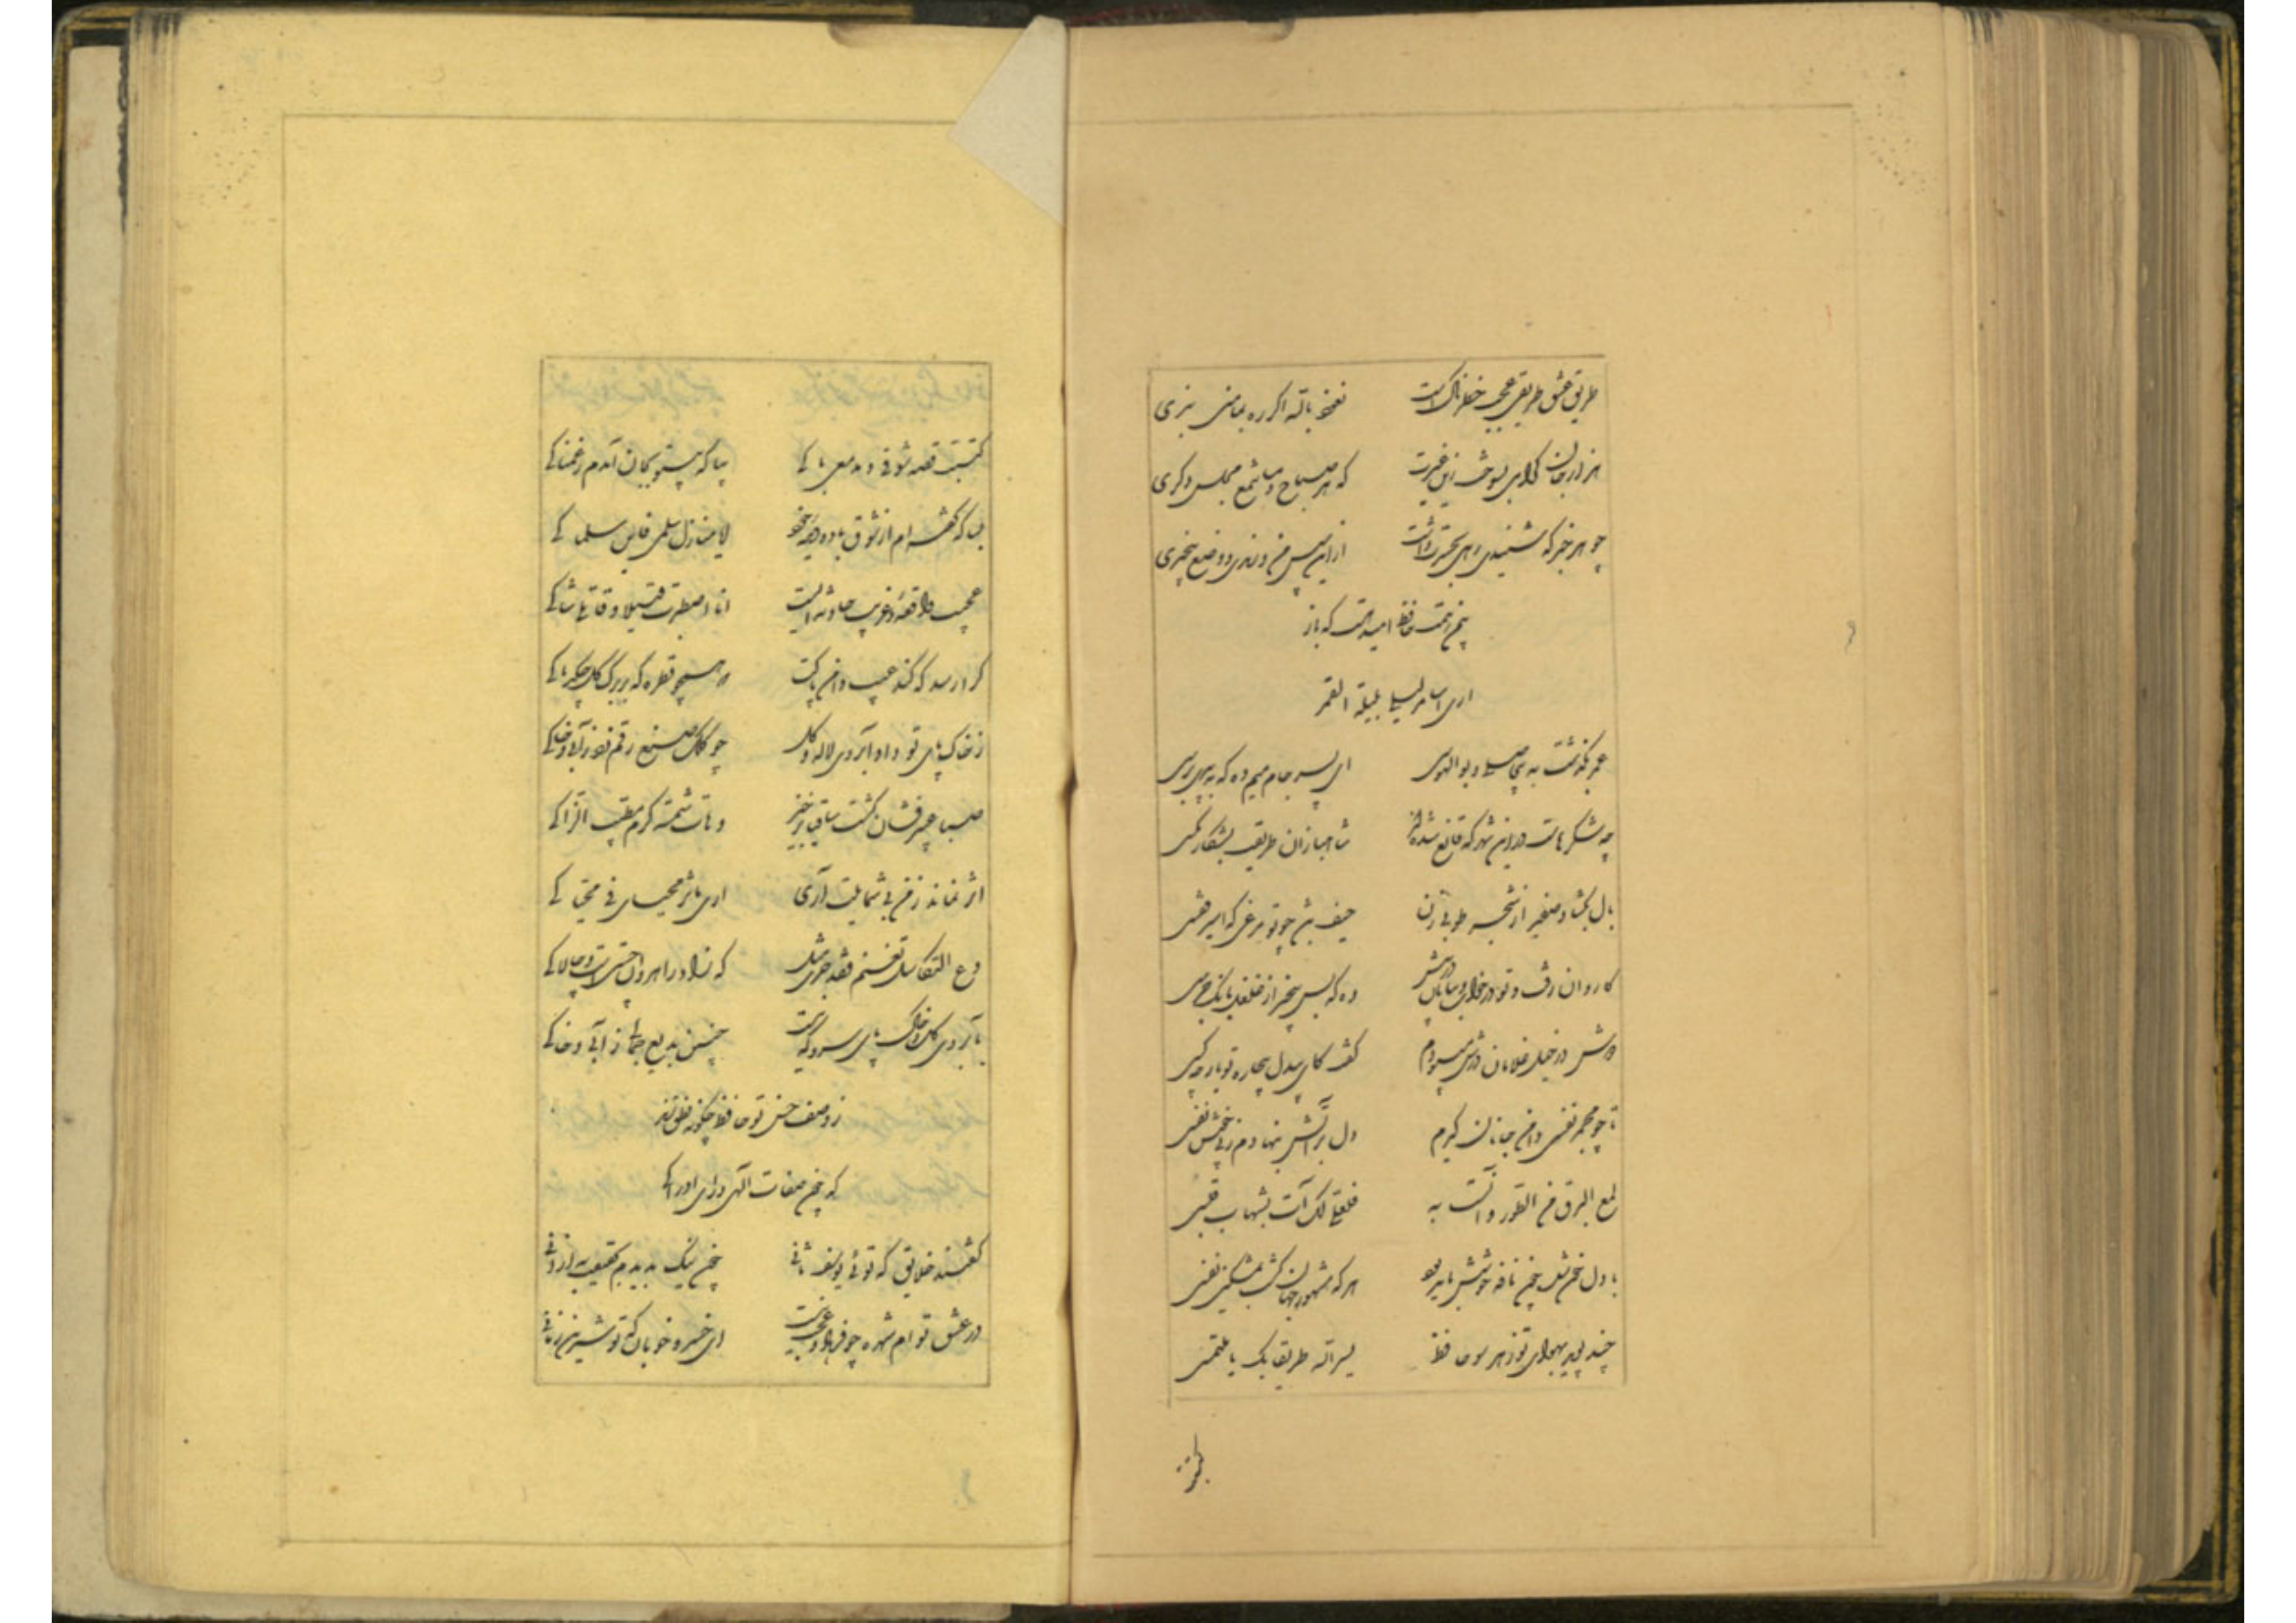 طریق عشق طریقی عجب خطرناکست نعوذ بالله اگر ره بمأمنی نبری
هزار جان گرامی بسوخت زین غیرت که هر صباح و مسا شمع مجلس دگری
چو هر خبر که شنیدی رهی بحیرت داشت ازین سپس من و رندی و وضع بیخبری
بیمن همت حافظ امید هست که باز
اری اسامر لیلی لیلة القمر
عمر بگذشت به بیحاصلی و بوالهوسی ای پسر جام میم ده که به پیری برسی
چه شکرهاست درین شهر که قانع شده‌اند شاهبازان طریقت بشکار مگسی
بال بگشا و صفیر از شجر طوبی زن حیف باشد چو تو مرغی که اسیر قفسی
کاروان رفت و تو در خواب و بیابان در پیش وه که بس بیخبر از غلغل بانگ جرسی
دوش در خیل غلامان درش میرفتم گفت کای بیدل بیچاره تو بار چه کسی
تا چو مجمر نفسی دامن جانان گیرم دل بر آتش بنهادم ز پی خوش نفسی
لمع البرق من الطور و آنست به فلعلی لک آت بشهاب قبس
با دل خون شده چون نافه خوشش باید بود هر که مشهور جهان گشت بمشکین نفسی
چند پوید بهوای تو ز هر سو حافظ یسر الله طریقا بک یا ملتمسی
کتبت قصة شوقی و مدمعی باکی بیا که بیتو بجان آمدم ز غمناکی
بسا که گفته‌ام از شوق با دو دیده خود ایا منازل سلمی فاین سلماکی
عجیب واقعه و غریب حادثه ایست انا اصطبرت قتیلا و قاتلی شاکی
کرا رسد که کند عیب دامن پاکت که همچو قطره که بر برگ گل چکد پاکی
ز خاک پای تو داد آبروی لاله و گل چو کلک صنع رقم زد بر آبی و خاکی
صبا عبیر فشان گشت ساقیا برخیز و هات شمسة کرم مطیب الزاکی
اثر نماند ز من بی شمایلت آری اری مآثر محیای فی محیاکی
دع التکاسل تغنم فقد جری مثل که زاد راهروان چستی است و چالاکی
بآبروی گل و خاک پای سرو که نیست چنین بدیع جمالی ز آبی و خاکی
ز وصف حسن تو حافظ چگونه نطق زند
که چون صفات الهی ورای ادراکی
گفتند خلایق که توئی یوسف ثانی چون نیک بدیدم بحقیقت به از آنی
در عشق تو ام شهره چو فرهاد و عجب نیست ای خسرو خوبان که تو شیرین زمانی